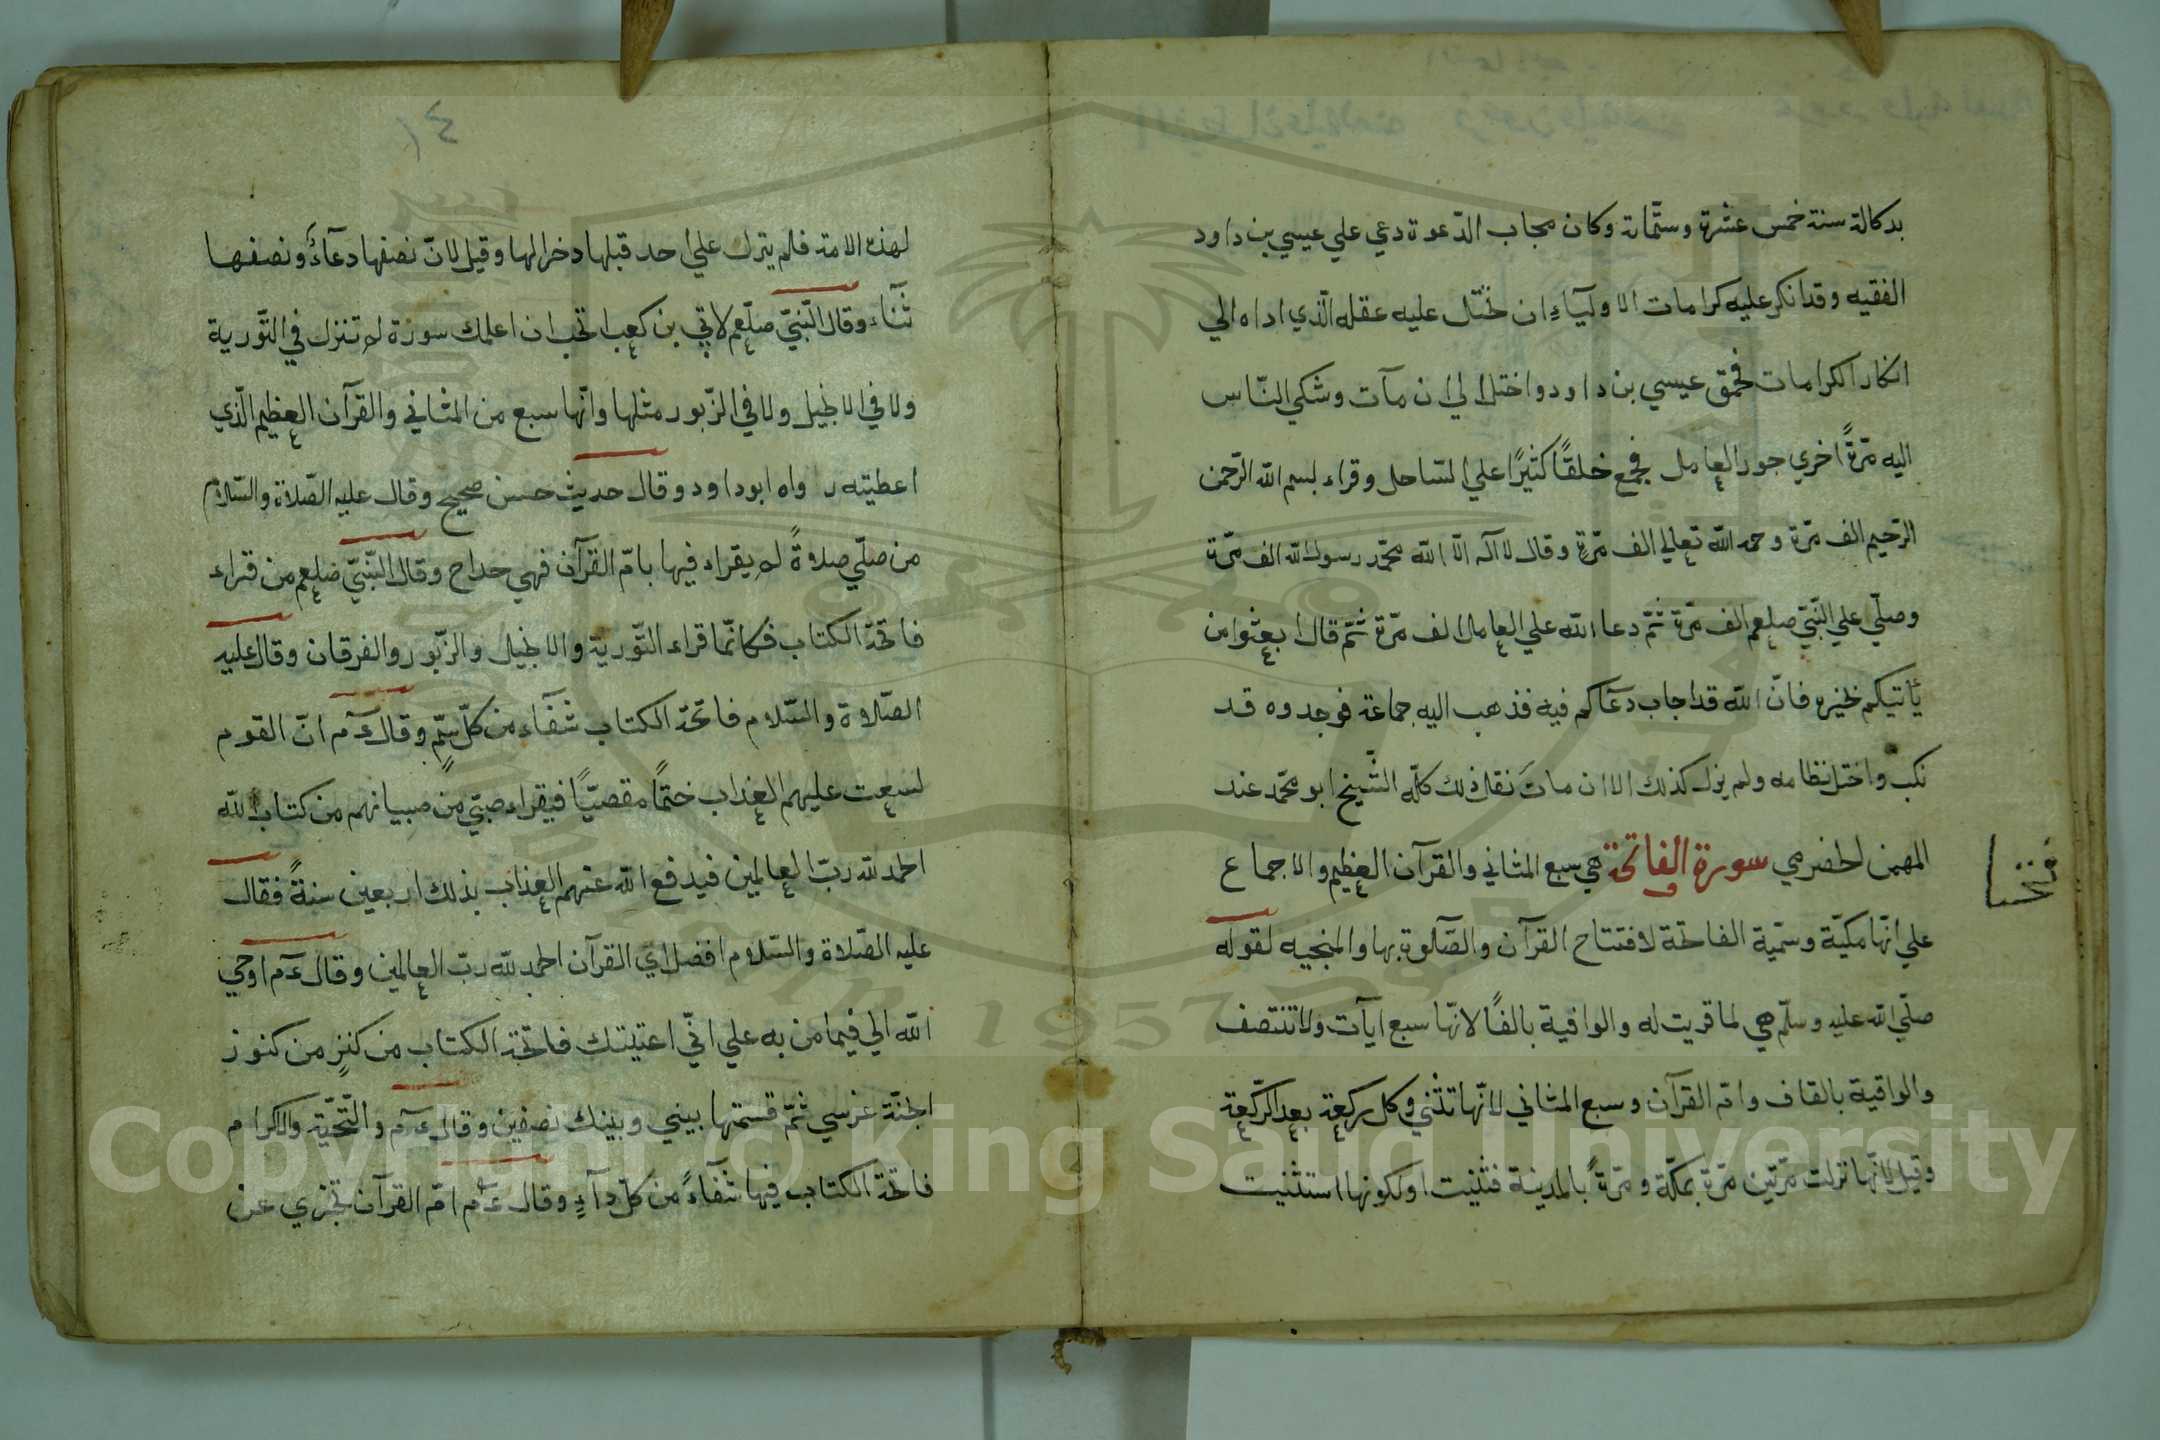 بدكالة سنة خمس عشرة وستمائة وكان مجاب الدّعوة دعي علي عيسي بن داود
الفقيه وقد انكر عليه كرامات الاوليآءِ ان عليه عقله الّذي اداه الي
انكار الكرامات فحمق عيسي بن داود واختل الي ان مآت وشكي النّاس
اليه مرّةً اخري جور العامل فجمع خلقًا كثيرًا علي السّاحل وقراء بسم الله الرّحمن
الرّحيم الف مرّة وحمد الله تعالي الف مرّةٍ وقال لا اله الّا الله محمّد رسول الله الف مرّة
وصلّي علي النّبيّ صلعم الف مرّة ثمّ دعا الله علي العامل الف مرّة ثمّ قال ابعثوا من
يأتيكم بخبره فانّ الله قد اجاب دعآكم فيه فذهب اليه جماعة فوجدوه قد
نكب واختل نظامه ولم يزل كذلك الا ان ماتَ نقل ذلك كلّه الشّيخ ابو محمّد عند
المهيمن الحضرمي سورة الفاتحة هي سبع المثاني والقرآن العظيم والاجماع
علي انّها مكيّة وسمّية الفاتحة لافتتاح القرآن والصّلوة بها والمنجيه لقوله
صلّي الله عليه وسلّم هي لما قريت له والوافية بالفآ لانّها سبع ايآت ولا تنتصف
والواقية بالقاف وامّ القرآن وسبع المثاني لانّها تثني في كل ركعة بعد الرّكعة
وقيل لانّها نزلت مرّتين مرّة بمكّة ومرّةً بالمدينة فثنيت او لكونها استثنيت
٤١
لهذه الامة فلم يترك علي احد قبلها دخرا لها وقيل لانّ نصفها دعآءٌ ونصفها
ثنآء وقال النّبيّ صلّعم لابّي بن كعب اتحب ان اعلمك سورة لم تنزل في التّورية
ولا في الانجيل ولا في الزّبور مثلها وانّها سبع من المثاني والقرآن العظيم الّذي
اعطيته رواه ابو داود وقال حديث حسن صحيح وقال عليه الصّلاة والسّلام
من صلّي صلاةً لم يقراء فيها بامّ القرآن فهي خداج وقال النّبيّ صلعم من قراء
فاتحة الكتاب فكانّما قراء التّورية والانجيل والزّبور والفرقان وقال عليه
الصّلاوة والسّلام فاتحة الكتاب شفآء من كلّ سمٍّ وقال ءم انّ القوم
لسعت عليهم العذاب ختمًا مقصيًّا فيقراء صبيّ من صبيانهم من كتاب الله
الحمد لله ربّ العالمين فيدفع الله عنهم العذاب بذلك اربعين سنةً فقال
عليه الصّلاة والسّلام افضل اي القرآن الحمد لله ربّ العالمين وقال ءم اوحي
الله الي فيما من به علي انّي اعتيتك فاتحة الكتاب من كنزٍ من كنوز
الجنّة عرسي ثمّ قسمتها بيني وبينك نصفين وقال ءم والتّحيّة والاكرام
فاتحة الكتاب فيها شفآءً من كلّ دآءٍ وقال ءم امّ القرآن تجزي عن
Copyright © King Saud University
1957